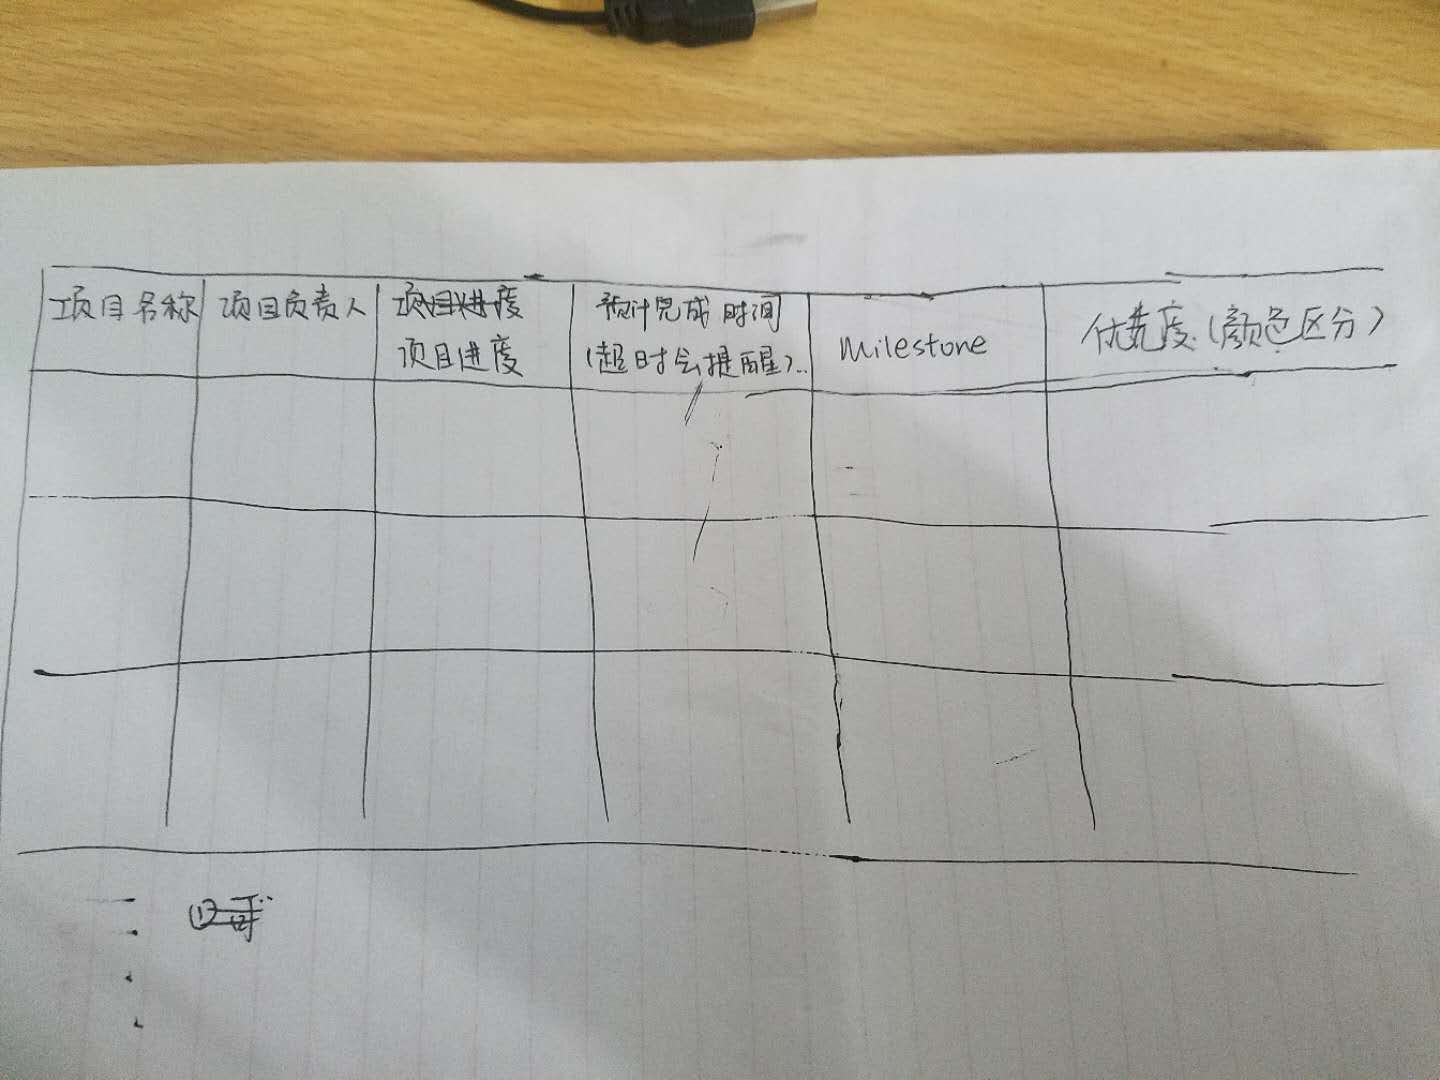 项目名称
项目负责人
项目进度
项目进度
预计完成时间
(超时会提醒)..
Milestone
优先度(颜色区分)